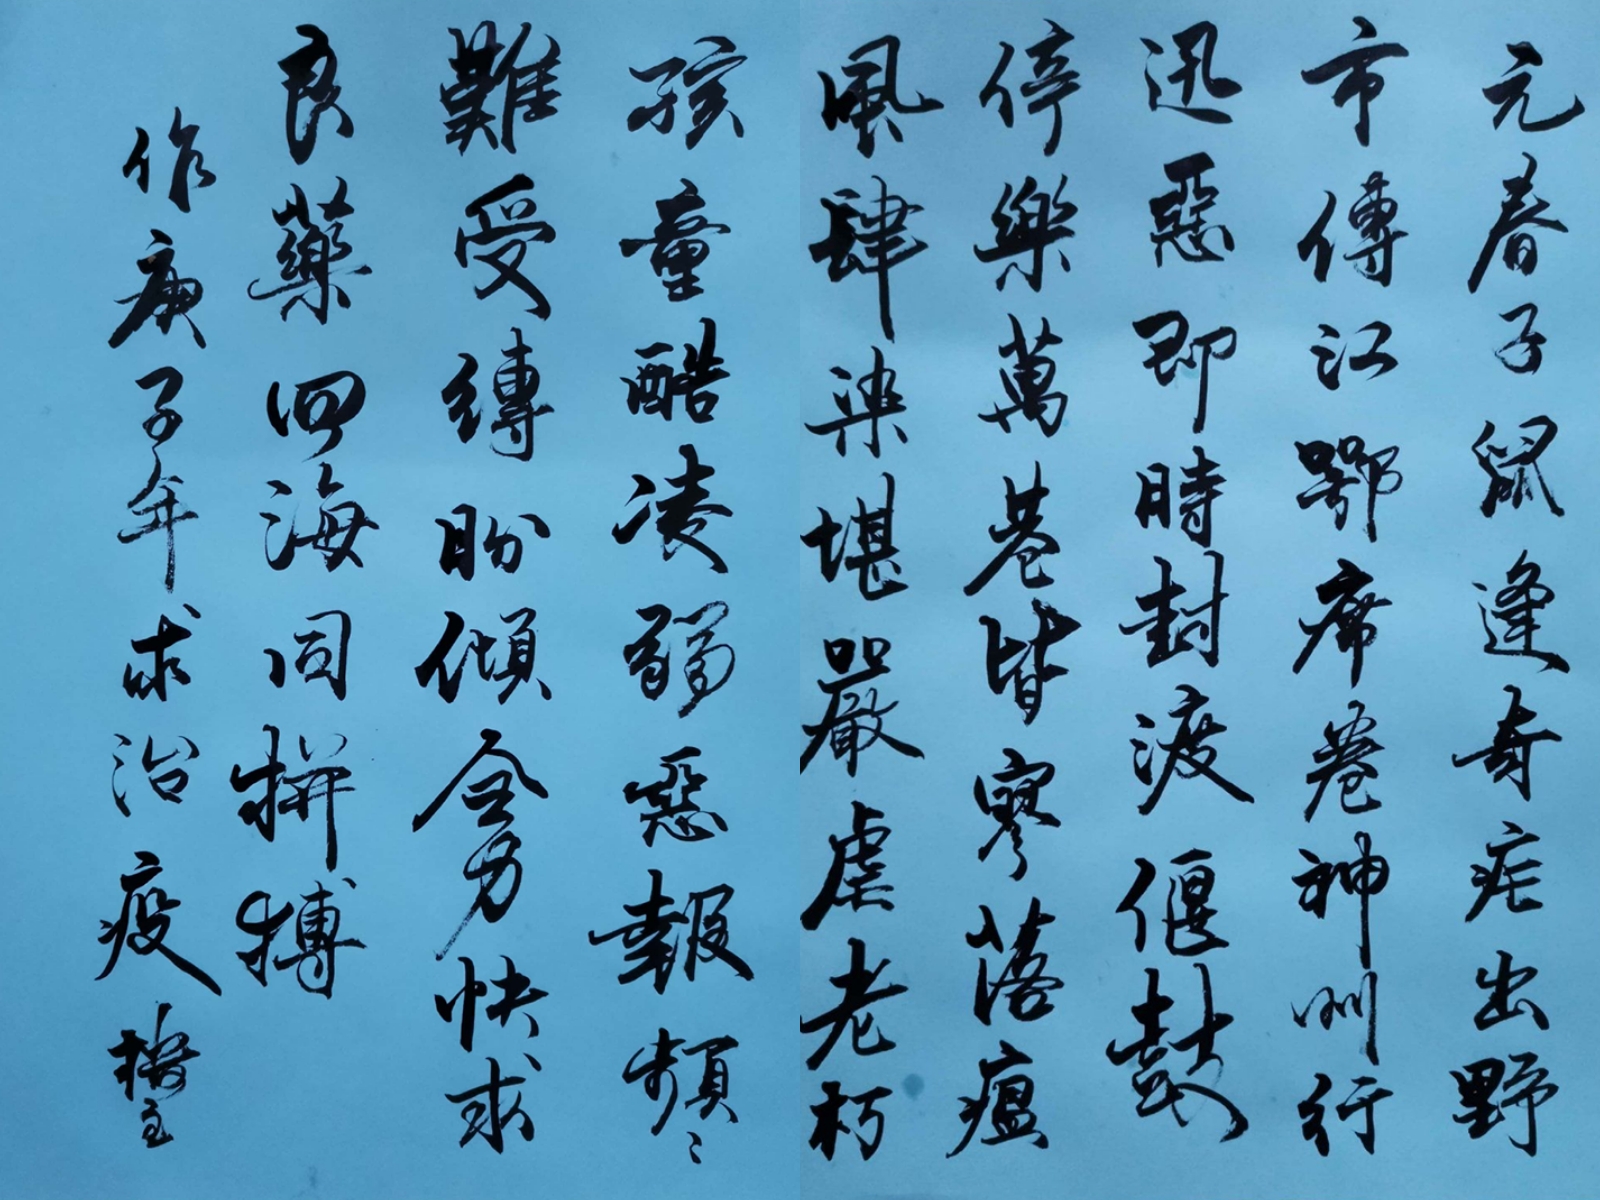 元春子鼠逢奇疟出野
市傳江鄂席卷神州行
迅惡即時封渡偃鼓
停樂萬巷皆寥落瘟
風肆染堪嚴虐老朽
孩童酷凌弱惡報頻〻
難受縛盼傾全力快求
良藥四海同拼搏
作庚子年求治疫